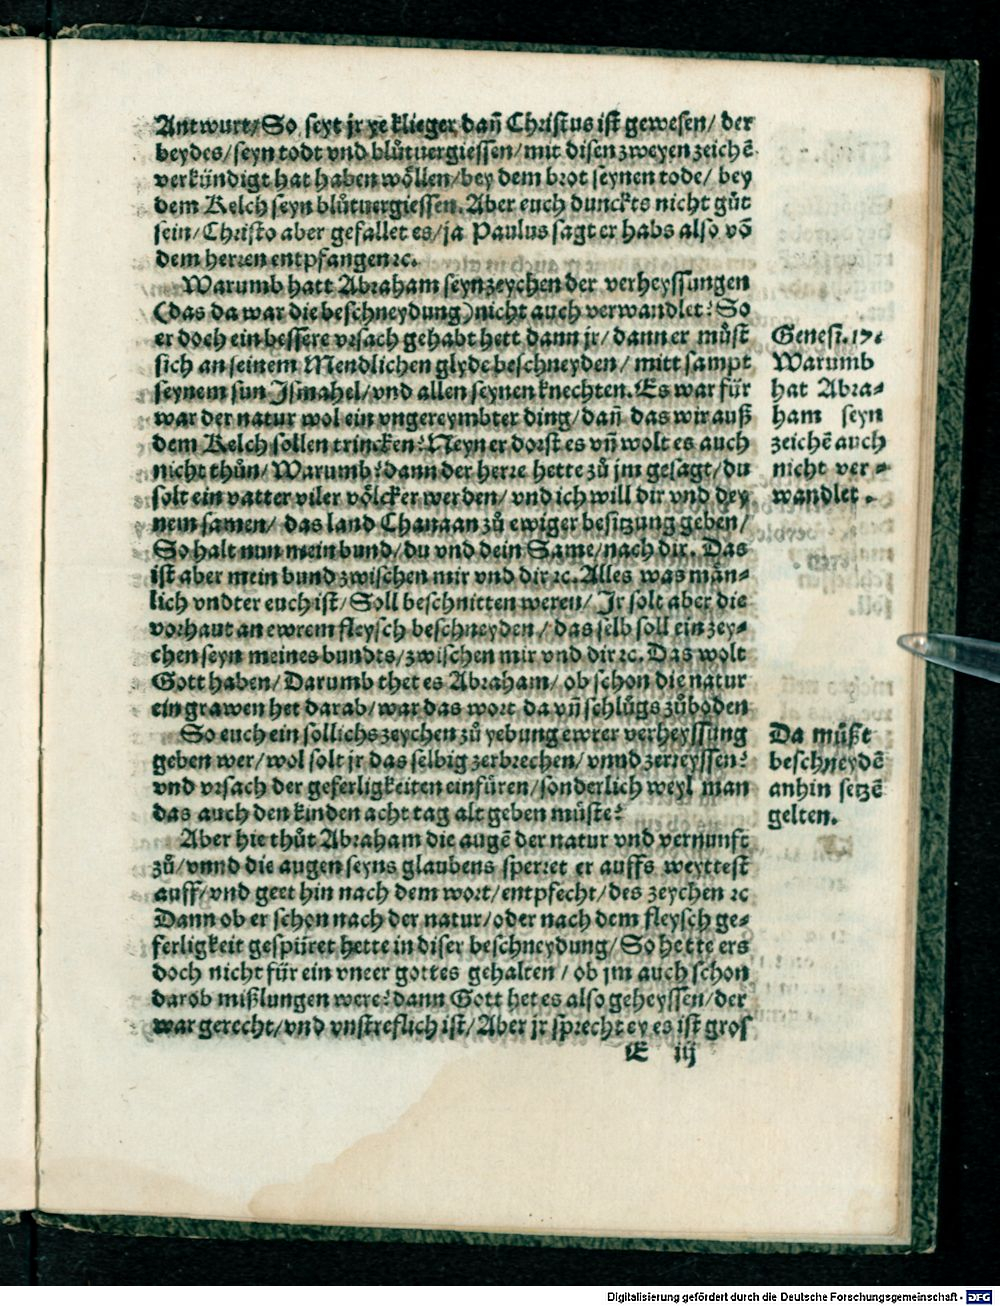 Antwurt/ So seyt jr ye klieger dañ Christus ist gewesen/ der
beydes/ seyn todt vnd blůtuergiessen/ mit disen zweyen zeichē
verkündigt hat haben wöllen/ bey dem brot seynen tode/ bey
dem Kelch seyn blůtuergiessen. Aber euch dunckts nicht gůt
sein/ Christo aber gefallet es/ ja Paulus sagt er habs also vō
dem herren entpfangen ꝛc.
Warumb hatt Abraham seyn zeychen der verheyssungen
(das da war die beschneydung) nicht auch verwandlet? So
er doch ein bessere vrsach gehabt hett dann jr/ dann er můst
sich an seinem Mendlichen glyde beschneyden/ mitt sampt
seynem sun Ismahel/ vnd allen seynen knechten. Es war für
war der natur wol ein vngereymbter ding/ dañ das wir auß
dem Kelch sollen trincken? Neyn er dorst es vñ wolt es auch
nicht thůn/ Warumb? dann der herre hette zů jm gesagt/ du
solt ein vatter viler völcker werden/ vnd ich will dir vnd dey
nem samen/ das land Chanaan zů ewiger besitzung geben/
So halt nun mein bund/ du vnd dein Same/ nach dir. Das
ist aber mein bund zwischen mir vnd dir ꝛc. Alles was män⸗
lich vndter euch ist/ Soll beschnitten weren/ Jr solt aber die
vorhaut an ewrem fleysch beschneyden/ das selb soll ein zey⸗
chen seyn meines bundts/ zwischen mir vnd dir ꝛc. Das wolt
Gott haben/ Darumb thet es Abraham/ ob schon die natur
ein grawen het darab/ war das wort da vñ schlůgs zůboden
So euch ein sollichs zeychen zů yebung ewrer verheyssung
geben wer/ wol solt jr das selbig zerbrechen/ vnnd zerreyssen?
vnd vrsach der geferligkeiten einfüren/ sonderlich weyl man
das auch den kinden acht tag alt geben můste?
Aber hie thůt Abraham die augē der natur vnd vernunft
zů/ vnnd die augen seyns glaubens sperret er auffs weyttest
auff/ vnd geet hin nach dem wort/ entpfecht/ des zeychen ꝛc
Dann ob er schon nach der natur/ oder nach dem fleysch ge⸗
ferligkeit gespüret hette in diser beschneydung/ So hette ers
doch nicht für ein vneer gottes gehalten/ ob jm auch schon
darob mißlungen were? dann Gott het es also geheyssen/ der
war gerecht/ vnd vnstreflich ist/ Aber jr sprecht ey es ist gros
E iij
Genesi. 17.
Warumb
hat Abra⸗
ham seyn
zeichē auch
nicht ver⸗
wandlet.
Da můßt
beschneydē
anhin setzē
gelten.
Digitalisierung gefördert durch die Deutsche Forschungsgemeinschaft - DFG